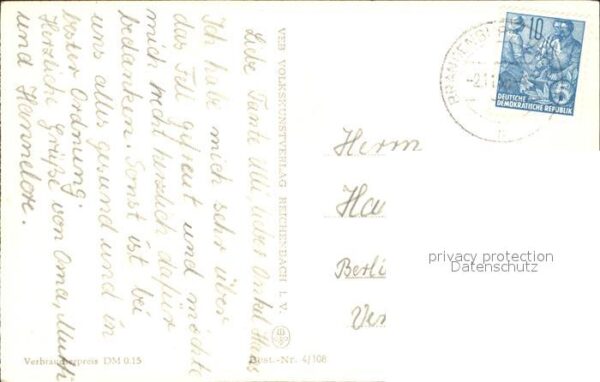 Liebe Tante Ulli, lieber Onkel Hans
Ich habe mich sehr über
das Fell gefreut und möchte
mich recht herzlich dafür
bedanken. Sonst ist bei
uns alles gesund und in
bester Ordnung.
Herzliche Grüße von Oma, Mutti
und Hannelore.
Verbraucherpreis DM 0.15
VEB VOLKSKUNSTVERLAG REICHENBACH I. V.
Best.-Nr. 4/108
10
5
DEUTSCHE
DEMOKRATISCHE REPUBLIK
Herrn
Ha
Berli
privacy protection
Datenschutz